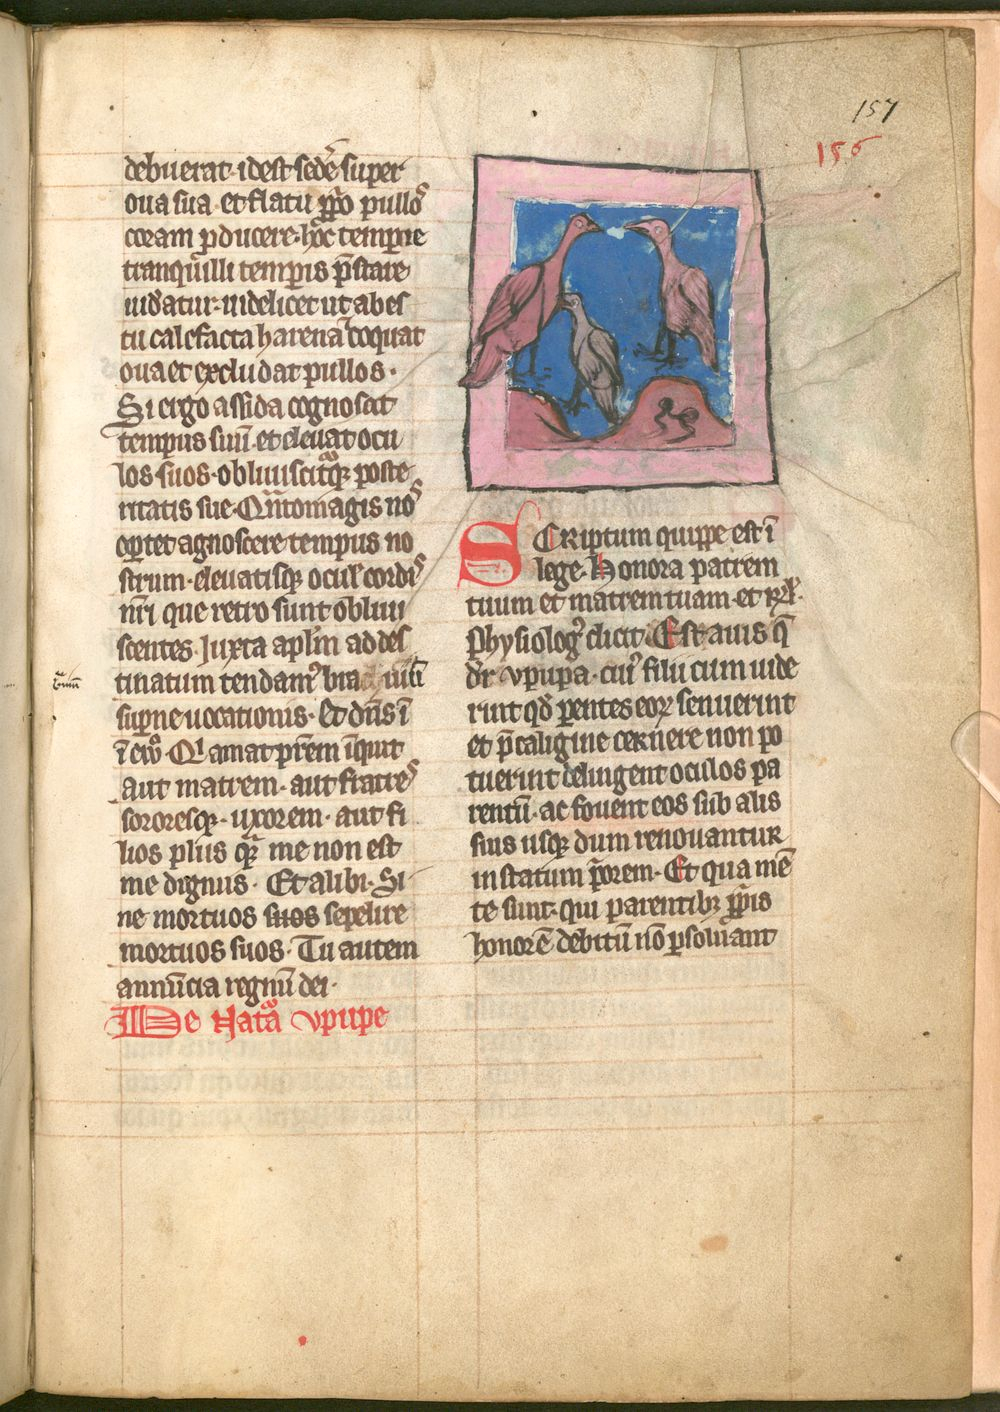 157
156
debuerat· idest sedē super
oua sua· et flatu ꝓp̄o pullos
coram ꝓducere· hoc temperie
tranquilli temporis p̄stare
uideatur· uidelicet ut ab es
tu calefacta harena coquat
oua et excludat pullos·
Si ergo assida cognoscat
tempus suū· et eleuat ocu
los suos· obliuiscitꝰqꝫ poste
ritatis sue· Q̄ntomagis nos
oportet agnoscere tempus no
strum· eleuatisqꝫ oculis cordis
nr̄i que retro sunt obliui
scentes· Iuxta aplm̄ ad des
tinatum tendamꝰ brauiū
suꝑne uocationis· Et dn̄s ī
Qui amat pr̄em inquit
Aut matrem· aut fratres
sororesqꝫ· uxorem· aut fi
lios plus quam me non est
me dignus· Et alibi· Si
ne mortuos suos sepelire
mortuos suos· Tu autem
annūcia regnū dei·
De Natura vpupe
SCRiptum quippe est ī
lege· Honora patrem
tuum et matrem tuam· et rl̄·
Physiologꝰ dicit· Est auis q̄
dr̄ vpupa· cuiꝰ filii cum uide
rint qd̄ parentes eorꝝ senuerint
et p̄ caligine cernere non po
tuerint delingent oculos pa
rentū· ac fouent eos sub alis
suis usqꝫ dum renouantur
in statum p̄orem· Et qua mē
te sunt· qui parentibꝫ ꝓp̄iis
honorē debitū nō ꝑsoluant